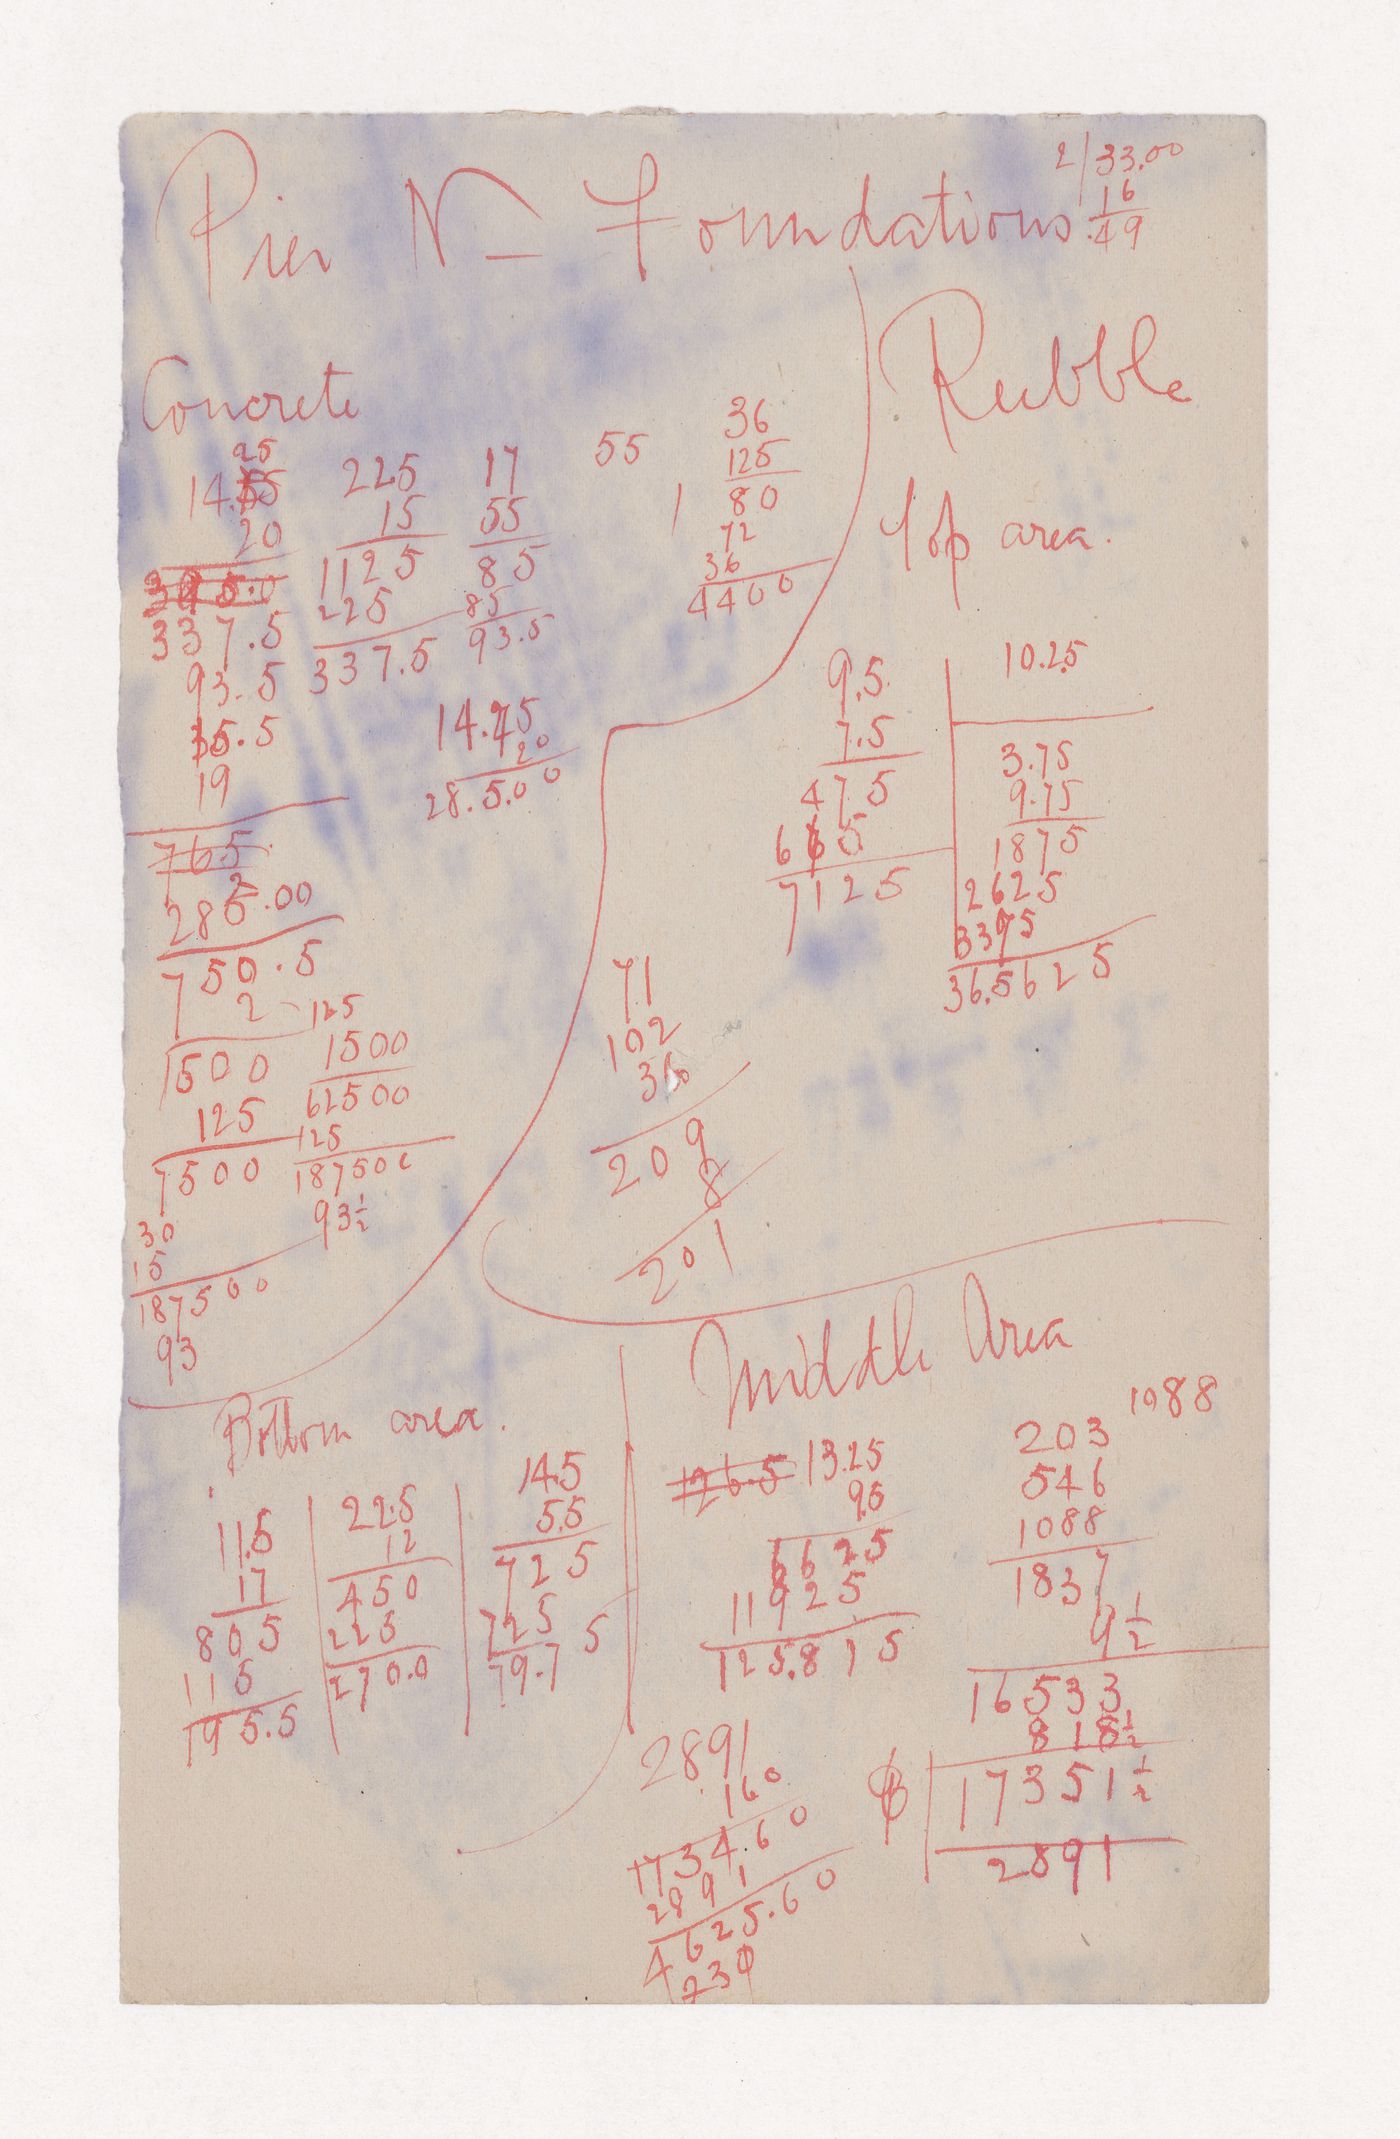 Pier N– Foundations
2/33.00
16
49
Concrete
25
14.55
20
337.5
93.5
35.5
19
765
2
285.00
750.5
2
1500
125
7500
30
15
187500
93
225
15
1125
225
337.5
17
55
85
85
93.5
55
36
125
1 80
72
36
4400
14.25
20
28.5.00
125
1500
62500
125
187500
93½
Rubble
Top area.
9.5
7.5
475
665
7125
10.25
3.75
9.75
1875
2625
3375
36.5625
71
102
36
209
8
201
Bottom area.
11.5
17
805
115
195.5
22.5
12
450
225
270.0
14.5
5.5
725
725
79.75
Middle Area
126.5 13.25
9.5
6625
11925
125.875
1088
203
546
1088
1837
9½
16533
818½
17351½
2891
2891
160
1734.60
2891
4625.60